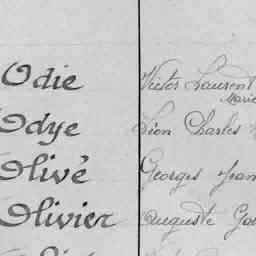 Odie Victor Laurent
Marie
Odye Léon Charles
Olivé Georges Jean
Olivier Auguste